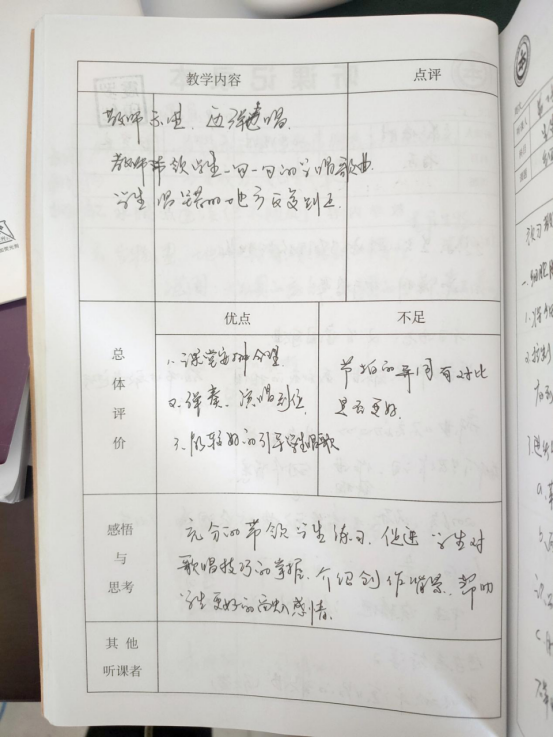 教学内容
点评
教师示思、边弹边唱.
教师带领学生一句一句的学唱歌曲.
学生唱错的地方反复纠正.
总体评价
优点
不足
1. 课堂安排合理
2. 弹奏、演唱到位,
3. 能较好的引导学生唱歌
节拍的异同有对比
是否更好
感悟与思考
充分的带领学生练习, 促进学生对
歌唱技巧的掌握. 介绍创作背景, 帮助
学生更好的
感情.
其他听课者